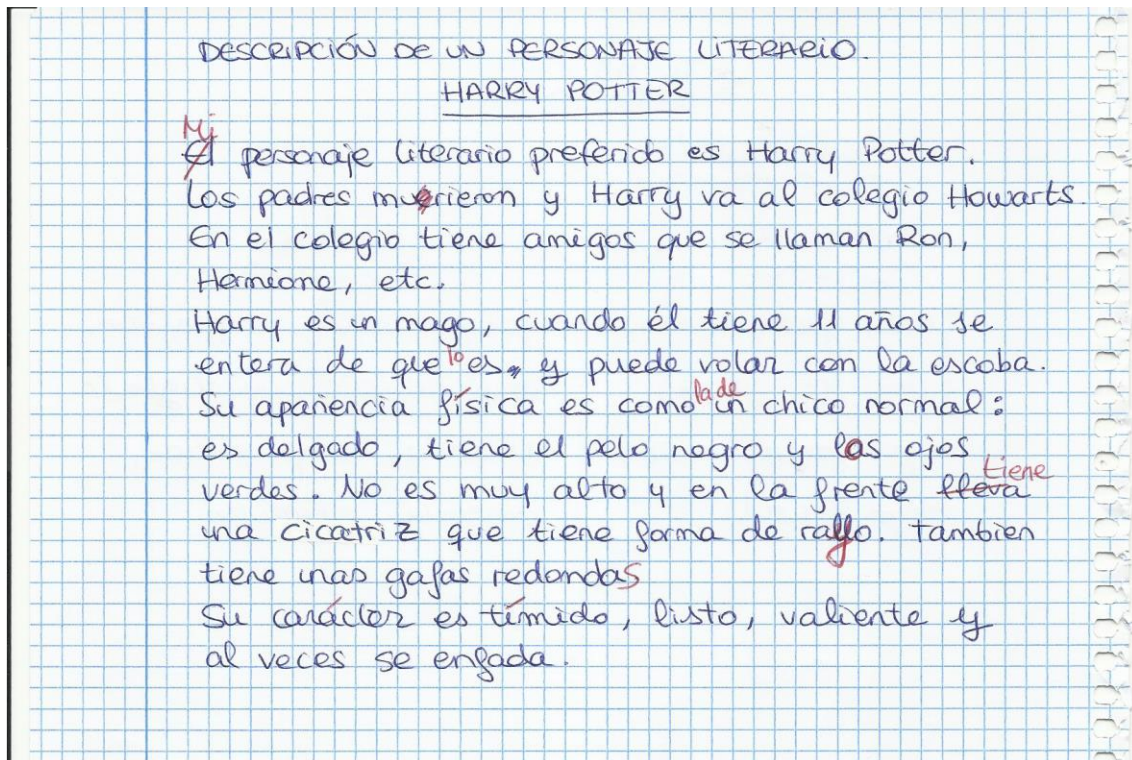 DESCRIPCIÓN DE UN PERSONAJE LITERARIO.
HARRY POTTER
Mi
El personaje literario preferido es Harry Potter.
Los padres murieron y Harry va al colegio Howarts.
En el colegio tiene amigos que se llaman Ron,
Hermione, etc.
Harry es un mago, cuando él tiene 11 años se
entera de que lo es, y puede volar con la escoba.
Su apariencia física es como la de un chico normal:
es delgado, tiene el pelo negro y los ojos
verdes. No es muy alto y en la frente lleva tiene
una cicatriz que tiene forma de rayo. Tambien
tiene unas gafas redondas
Su carácter es tímido, listo, valiente y
al veces se enfada.